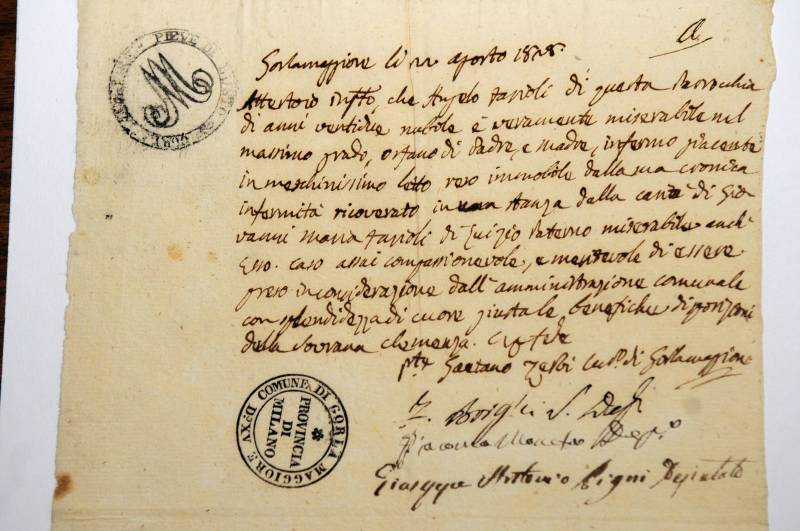 PIEVE DI
M
Gorlamaggiore li 22 agosto 1828.
Attestoio Infto, che Angelo Tapioli di questa Parrocchia
di anni ventidue nubile è veramente miserabile nel
massimo grado, orfano di Padre, e Madre, infermo giacente
in meschinissimo letto reso immobile dalla sua cronica
infermità ricoverato in una stanza dalla carità di Gio
vanni Maria Tapioli di lui zio Paterno miserabile anch'
esso. caso assai compassionevole, e meritevole di essere
preso in considerazione dall'amministrazione comunale
con splendidezza di cuore giusta le benefiche disposizioni
della Sovrana clemenza. In fede
Gaetano Zerbi Cur.o di Gorlamaggiore
Giuseppe Antonio Pigni Deputato
COMUNE DI GORLA MAGGIORE D. XV.
PROVINCIA
DI
MILANO